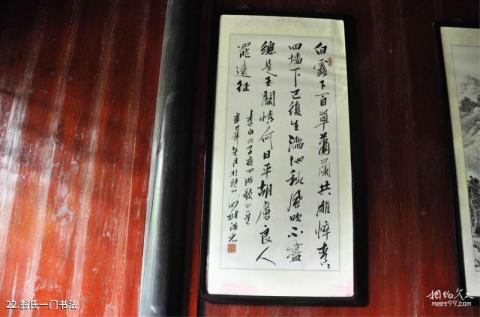 白露下百草蕭蘭共雕悴青々
四墙下已復生滿地秋風吹不盡
總是玉關情何日平胡虜良人
罷遠征
李白
22.翁氏一门书法
相约久久
meet99.com